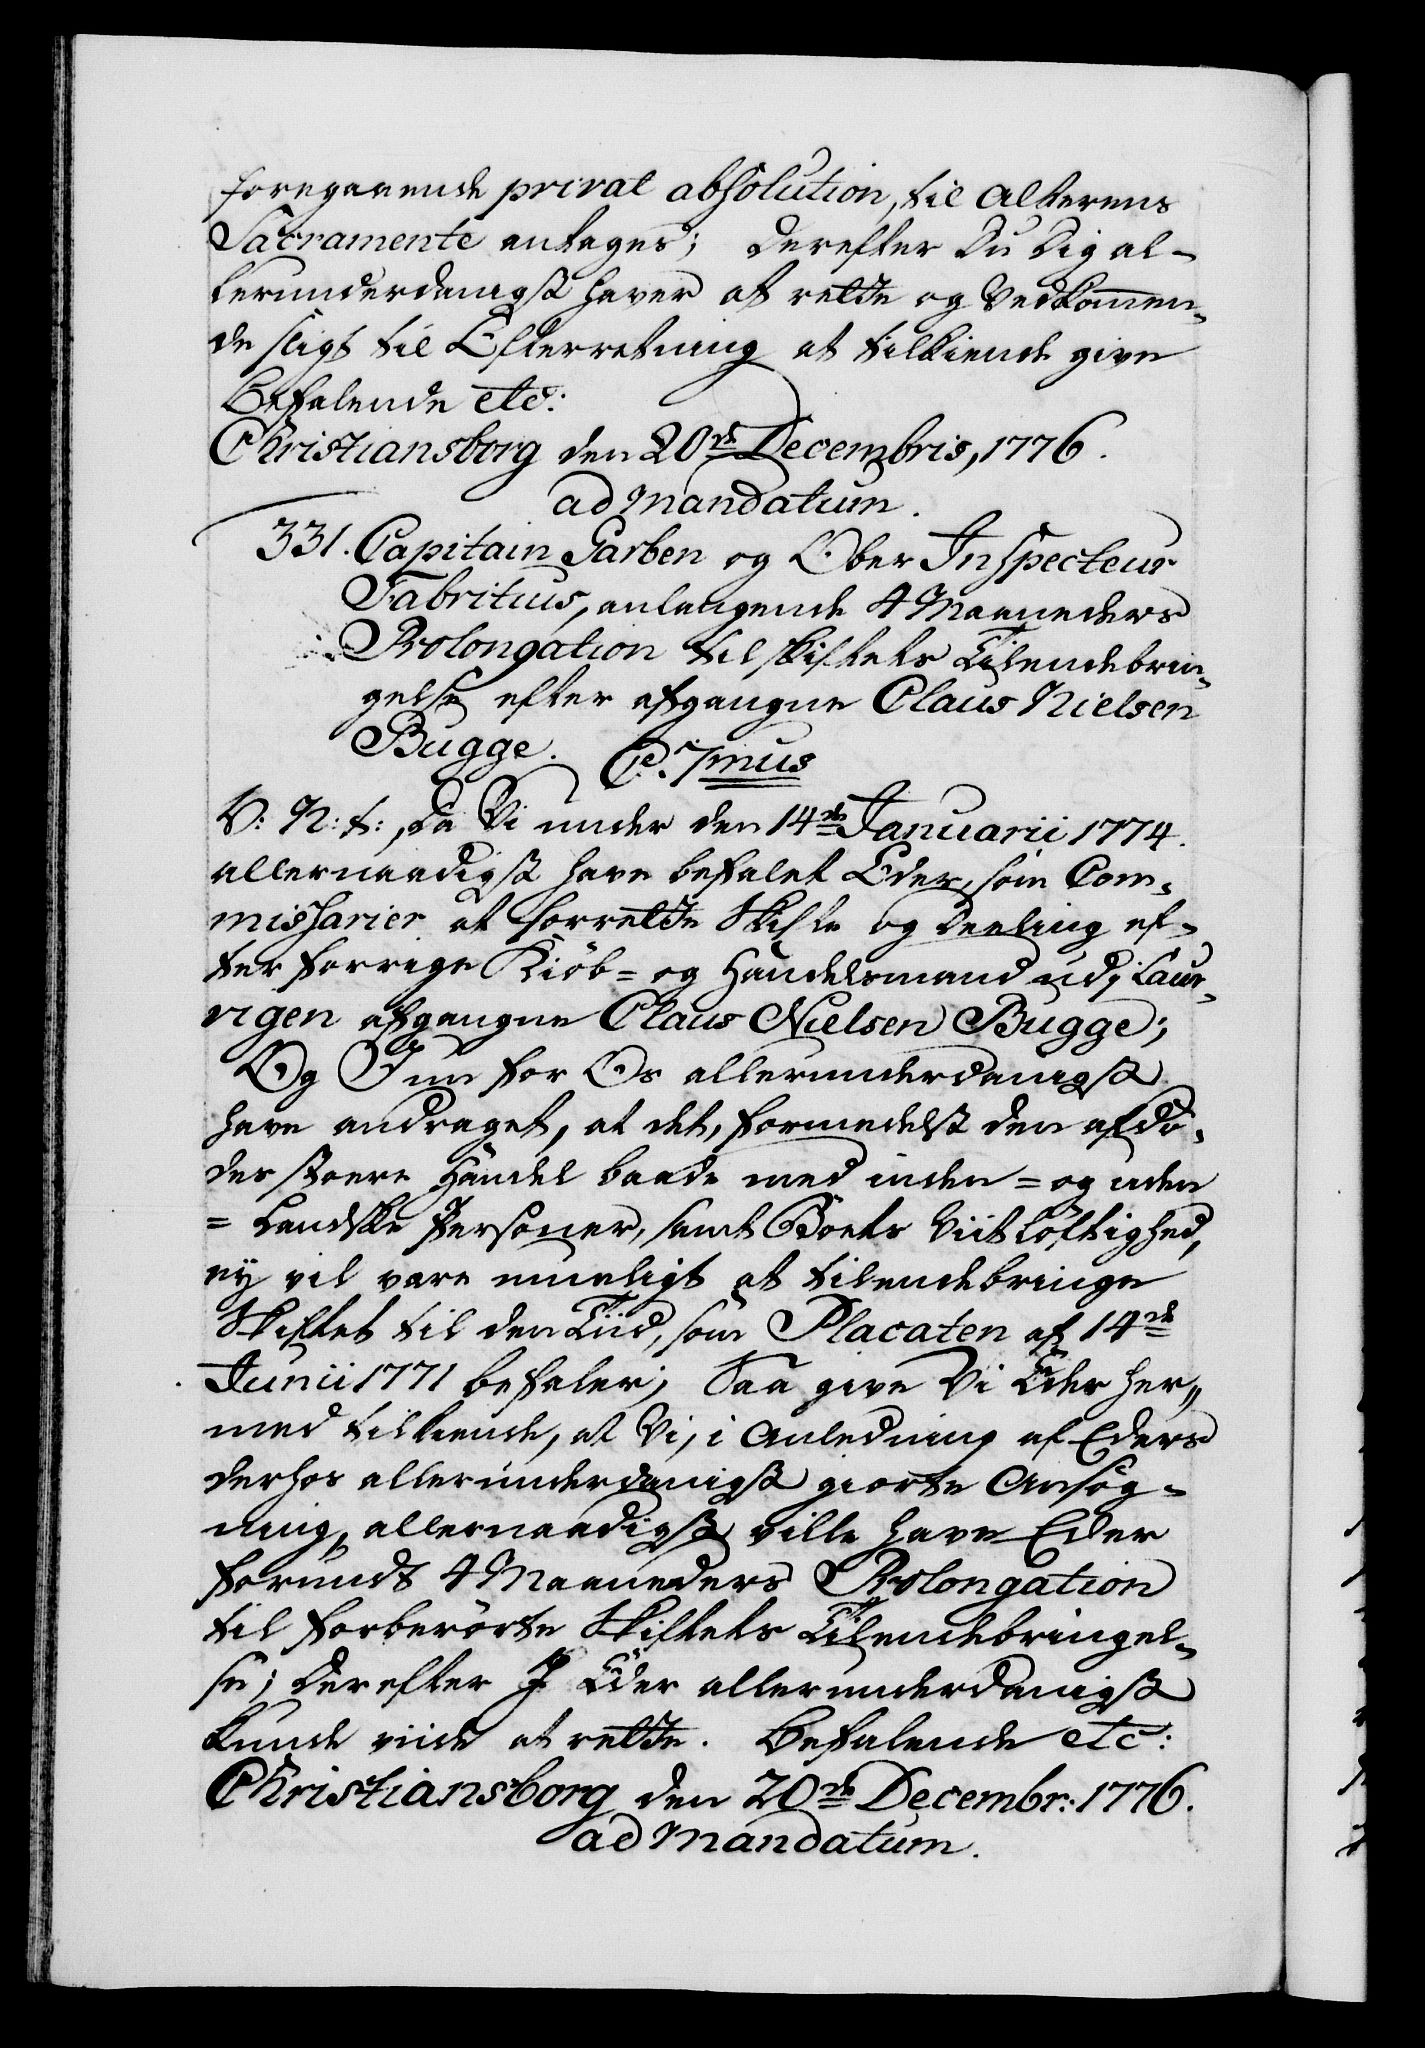 foregaaende privat absolution, til Alterens
Sacramente antages; Derefter Du Dig al-
lerunderdanigst haver at rette og Vedkommen-
de sligt til Efterretning at tilkiende give
Befalende etc:
Christiansborg den 20de Decembris, 1776.
ad Mandatum.
331. Capitain Garben og Ober Inspecteur
Fabritius, anlangende 4 Maaneders
Prolongation til Skiftets Tilendebrin-
gelse efter afgangne Claus Nielsen
Bugge. C. 7mus
V: N: t:, Da Vi under den 14de Januarii 1774.
allernaadigst have befalet Eder, som Com-
missarier at forrette Skifte og Deeling ef-
ter forrige Kiöb= og Handelsmand udj Laur-
vigen afgangne Claus Nielsen Bugge;
Og I nu for Os allerunderdanigst
have andraget, at det, formedelst den afdö-
des stoere Handel baade med inden= og uden
=Landske Personer, samt Boets Viitlöftighed,
ey vil være mueligt at tilendebringe
Skiftet til den Tiid, som Placaten af 14de
Junii 1771 befaler; Saa give Vi Eder her-
med tilkiende, at Vi, i Anledning af Eders
derhos allerunderdanigst giorte Ansög-
ning, allernaadigst ville have Eder
forundt 4 Maaneders Prolongation
til forberörte Skiftets Tilendebringel-
se; Derefter I Eder allerunderdanigst
kunde viide at rette. Befalende etc:
Christiansborg den 20de Decembr: 1776.
ad Mandatum.